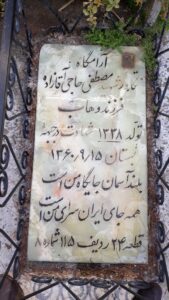 آرامگاه
مصطفی حاجی آقازاده
فرزند وهاب
تولد ۱۳۳۸ شهادت در جبهه
بستان ۱۳۶۰/۹/۱۵
بلند آسمان جایگاه من است
همه جای ایران سرای من است
قطعه ۲۴ ردیف ۱۱۵ شماره ۸